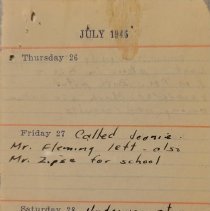 JULY 1946
Thursday 26
Friday 27 Called Jennie.
Mr. Fleming left - also
Mr. Zipse for school
Saturday 28